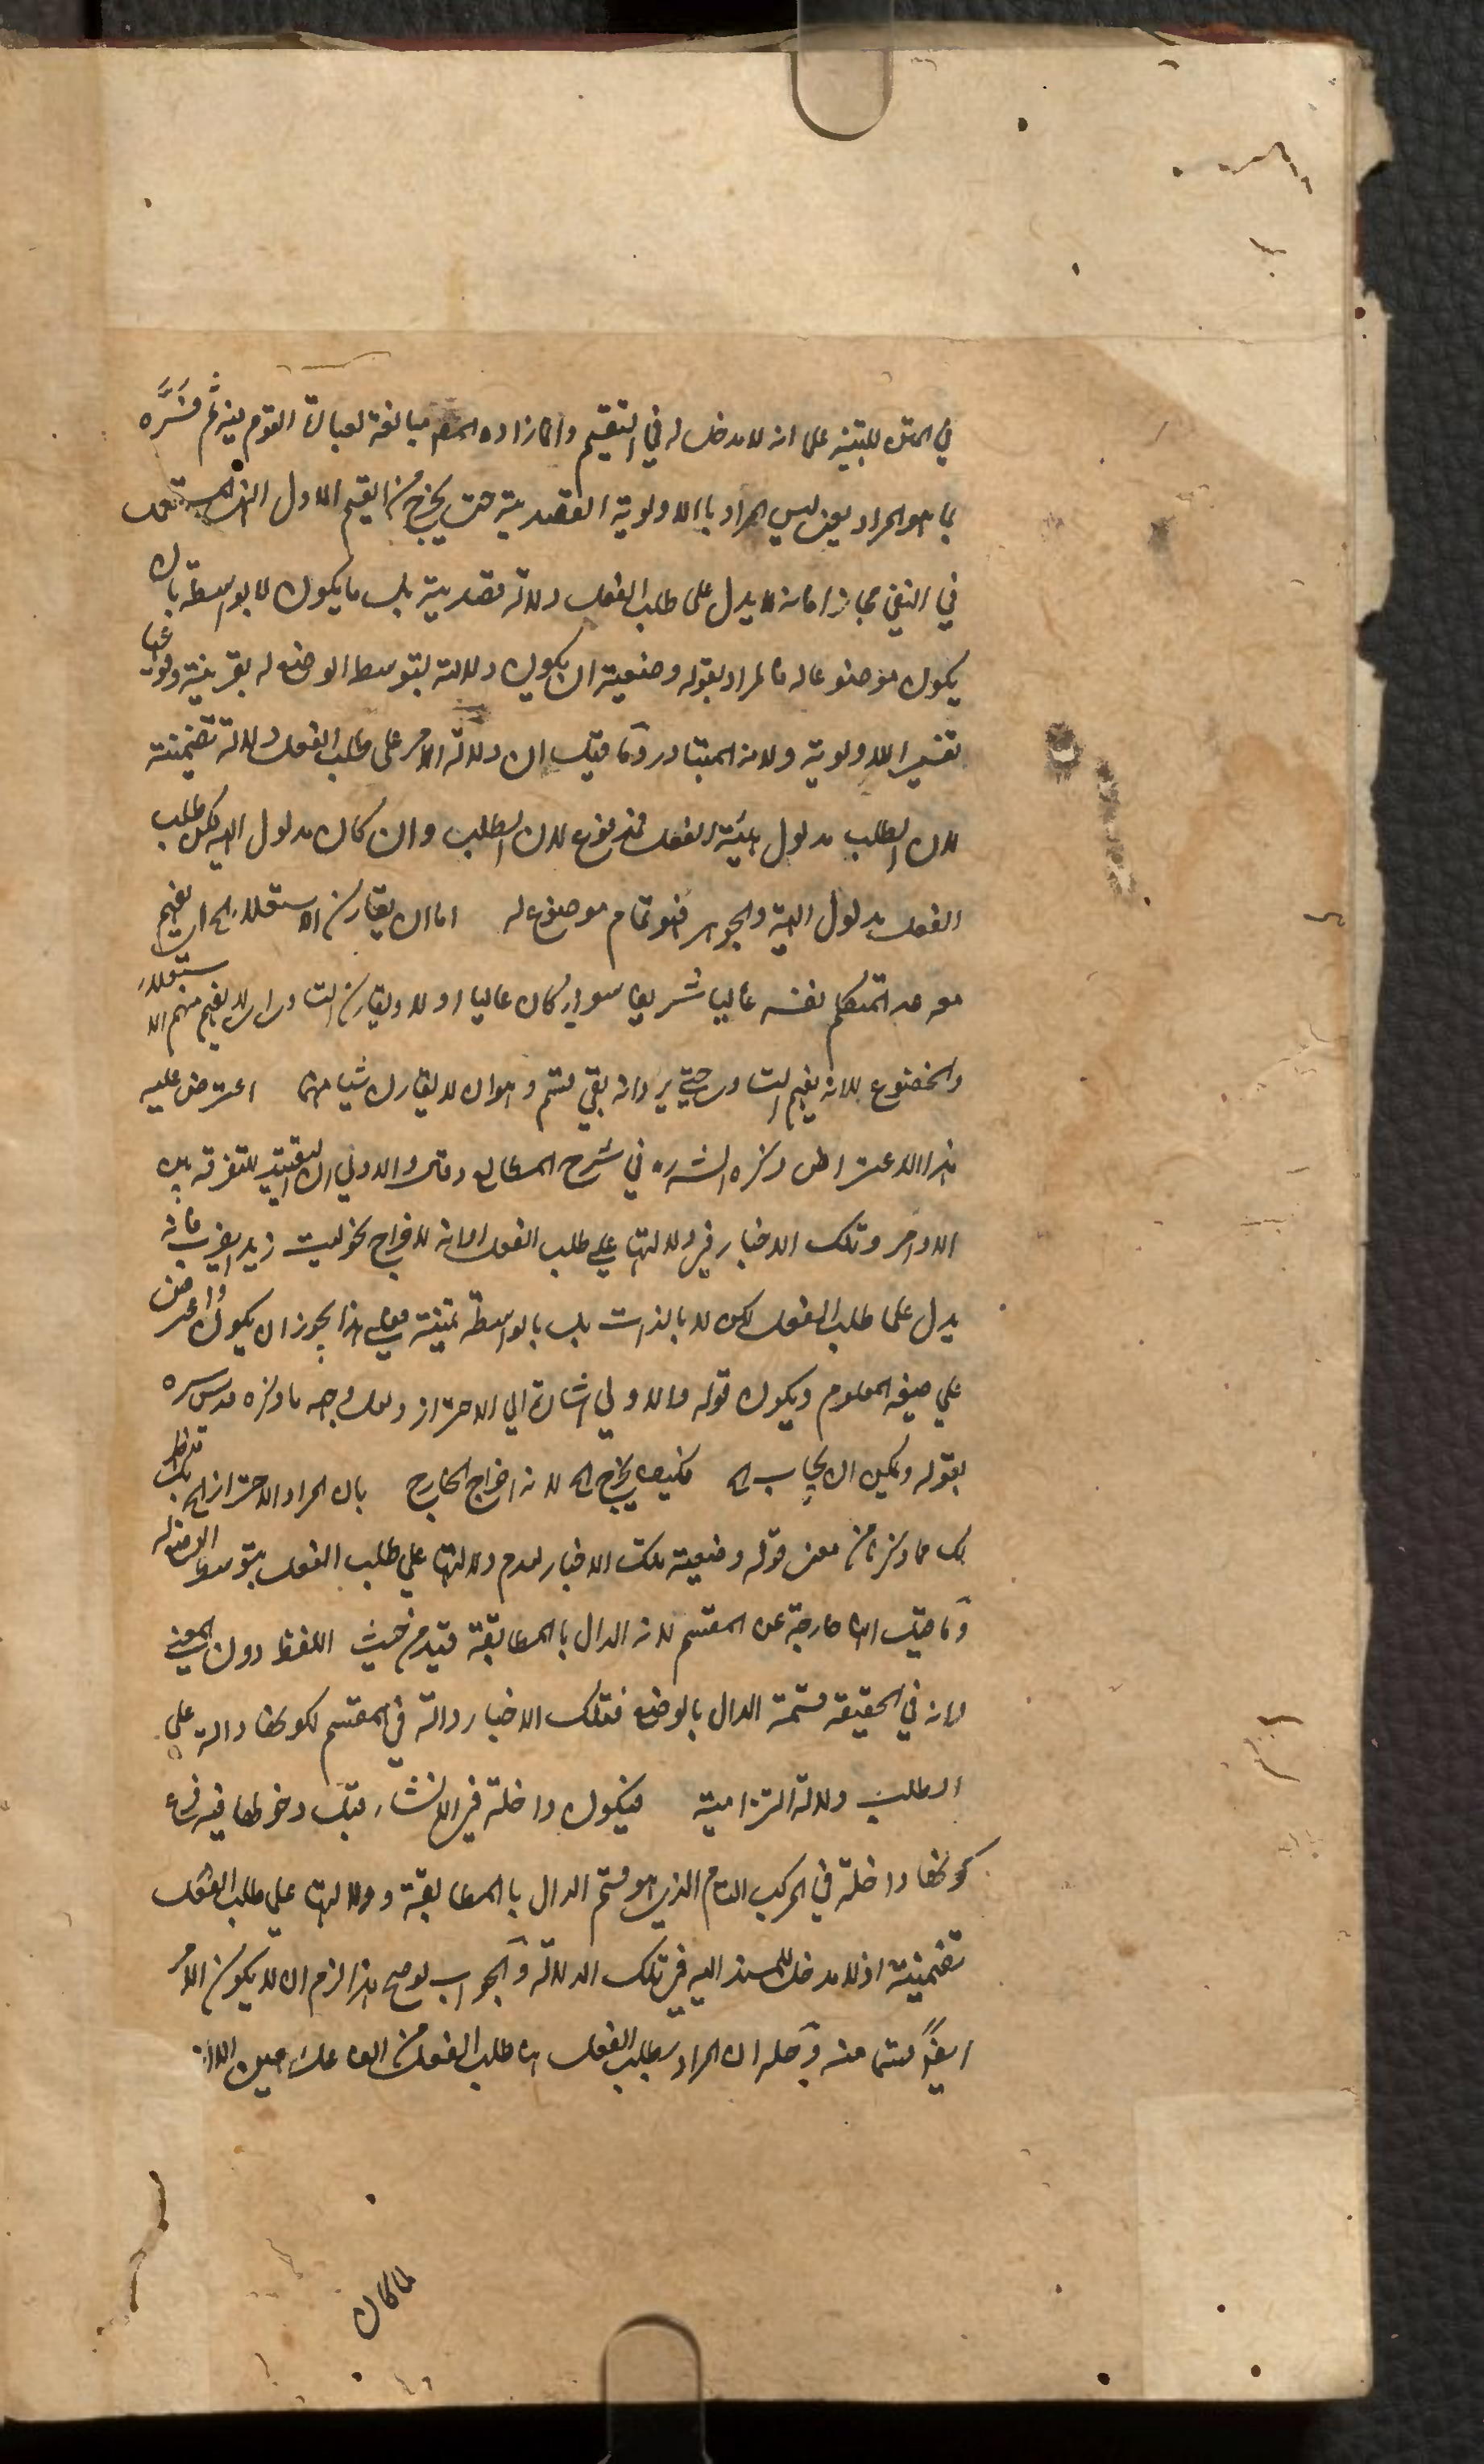 في المتن للتنبيه على انه لا مدخل له في التقسيم وانما زاده المصر مبالغة لعبارة القوم يعني ثم فسره
بما هو المراد يعني ليس المراد بالاولوية القصدية حتى يخرج من القسم الاول المستعمل
في النفي مجازا فانه لا يدل على طلب الفعل دلالة قصدية بل ما يكون لا بواسطة بان
يكون موضوعا له فالمراد بقوله وضعية ان يكون دلالته بتوسط الوضع له بقرينة وقوعها
تفسير الاولوية ولانه المتبادر وما قيل ان دلالة الامر على طلب الفعل دلالة تضمنية
لان الطلب مدلول هيئة الفعل فمدفوع لان الطلب وان كان مدلول الهيئة لكن طلب
الفعل مدلول الهيئة والجوهر فهو تمام موضوع له اما ان يقارن الاستعلاء الخ اي يفهم
معه عد المتكلم نفسه عاليا شريفا سواء كان عاليا او لا ويقارن التساوي اي لا يفهم منهم الاستعلاء
والخضوع لا انه يفهم التساوي حتى يرد انه بقي قسم وهو ان لا يقارن شيئا منها اعترض عليه
هذا الاعتراض ذكره الشره في شرح المطالع وقال والاولى ان التقييد للتفرقة بين
الاوامر وتلك الاخبار في دلالتها على طلب الفعل لا انه لاخراج نحو ليت زيد يضرب فانه
يدل على طلب الفعل لكن لا بالذات بل بالواسطة تمنيه فعلى هذا يجوز ان يكون واعترض
على صيغة المعلوم ويكون قوله والاولى اشارة الى الاحتراز ولعل وجهه ما ذكره قدس سره
بقوله ويمكن ان يجاب الخ فكيف يخرج الخ لانه اخراج الخارج بان المراد الاحتراز الخ
لك مما ذكرنا من معنى قوله وضعية تلك الاخبار لعدم دلالتها على طلب الفعل بتوسط الوضع له
وما قيل انها خارجة عن المقسم لانه الدال بالمطابقة قيد من حيث اللفظ دون المعنى
لانه في الحقيقة قسمة الدال بالوضع فتلك الاخبار داخلة في المقسم لكونها دالة على
الطلب دلالة التزامية فيكون داخلة في الانشاء قيل دخولها فيه فرع
كونها داخلة في المركب التام الذي هو قسم الدال بالمطابقة ودلالتها على طلب الفعل
تضمنية اذ لا مدخل للمسند اليه في تلك الدلالة والجواب لو صح هذا لزم ان لا يكون الامر
ايضا قسما منه وحله ان المراد بطلب الفعل هنا طلب الفعل من الفاعل
ما كان